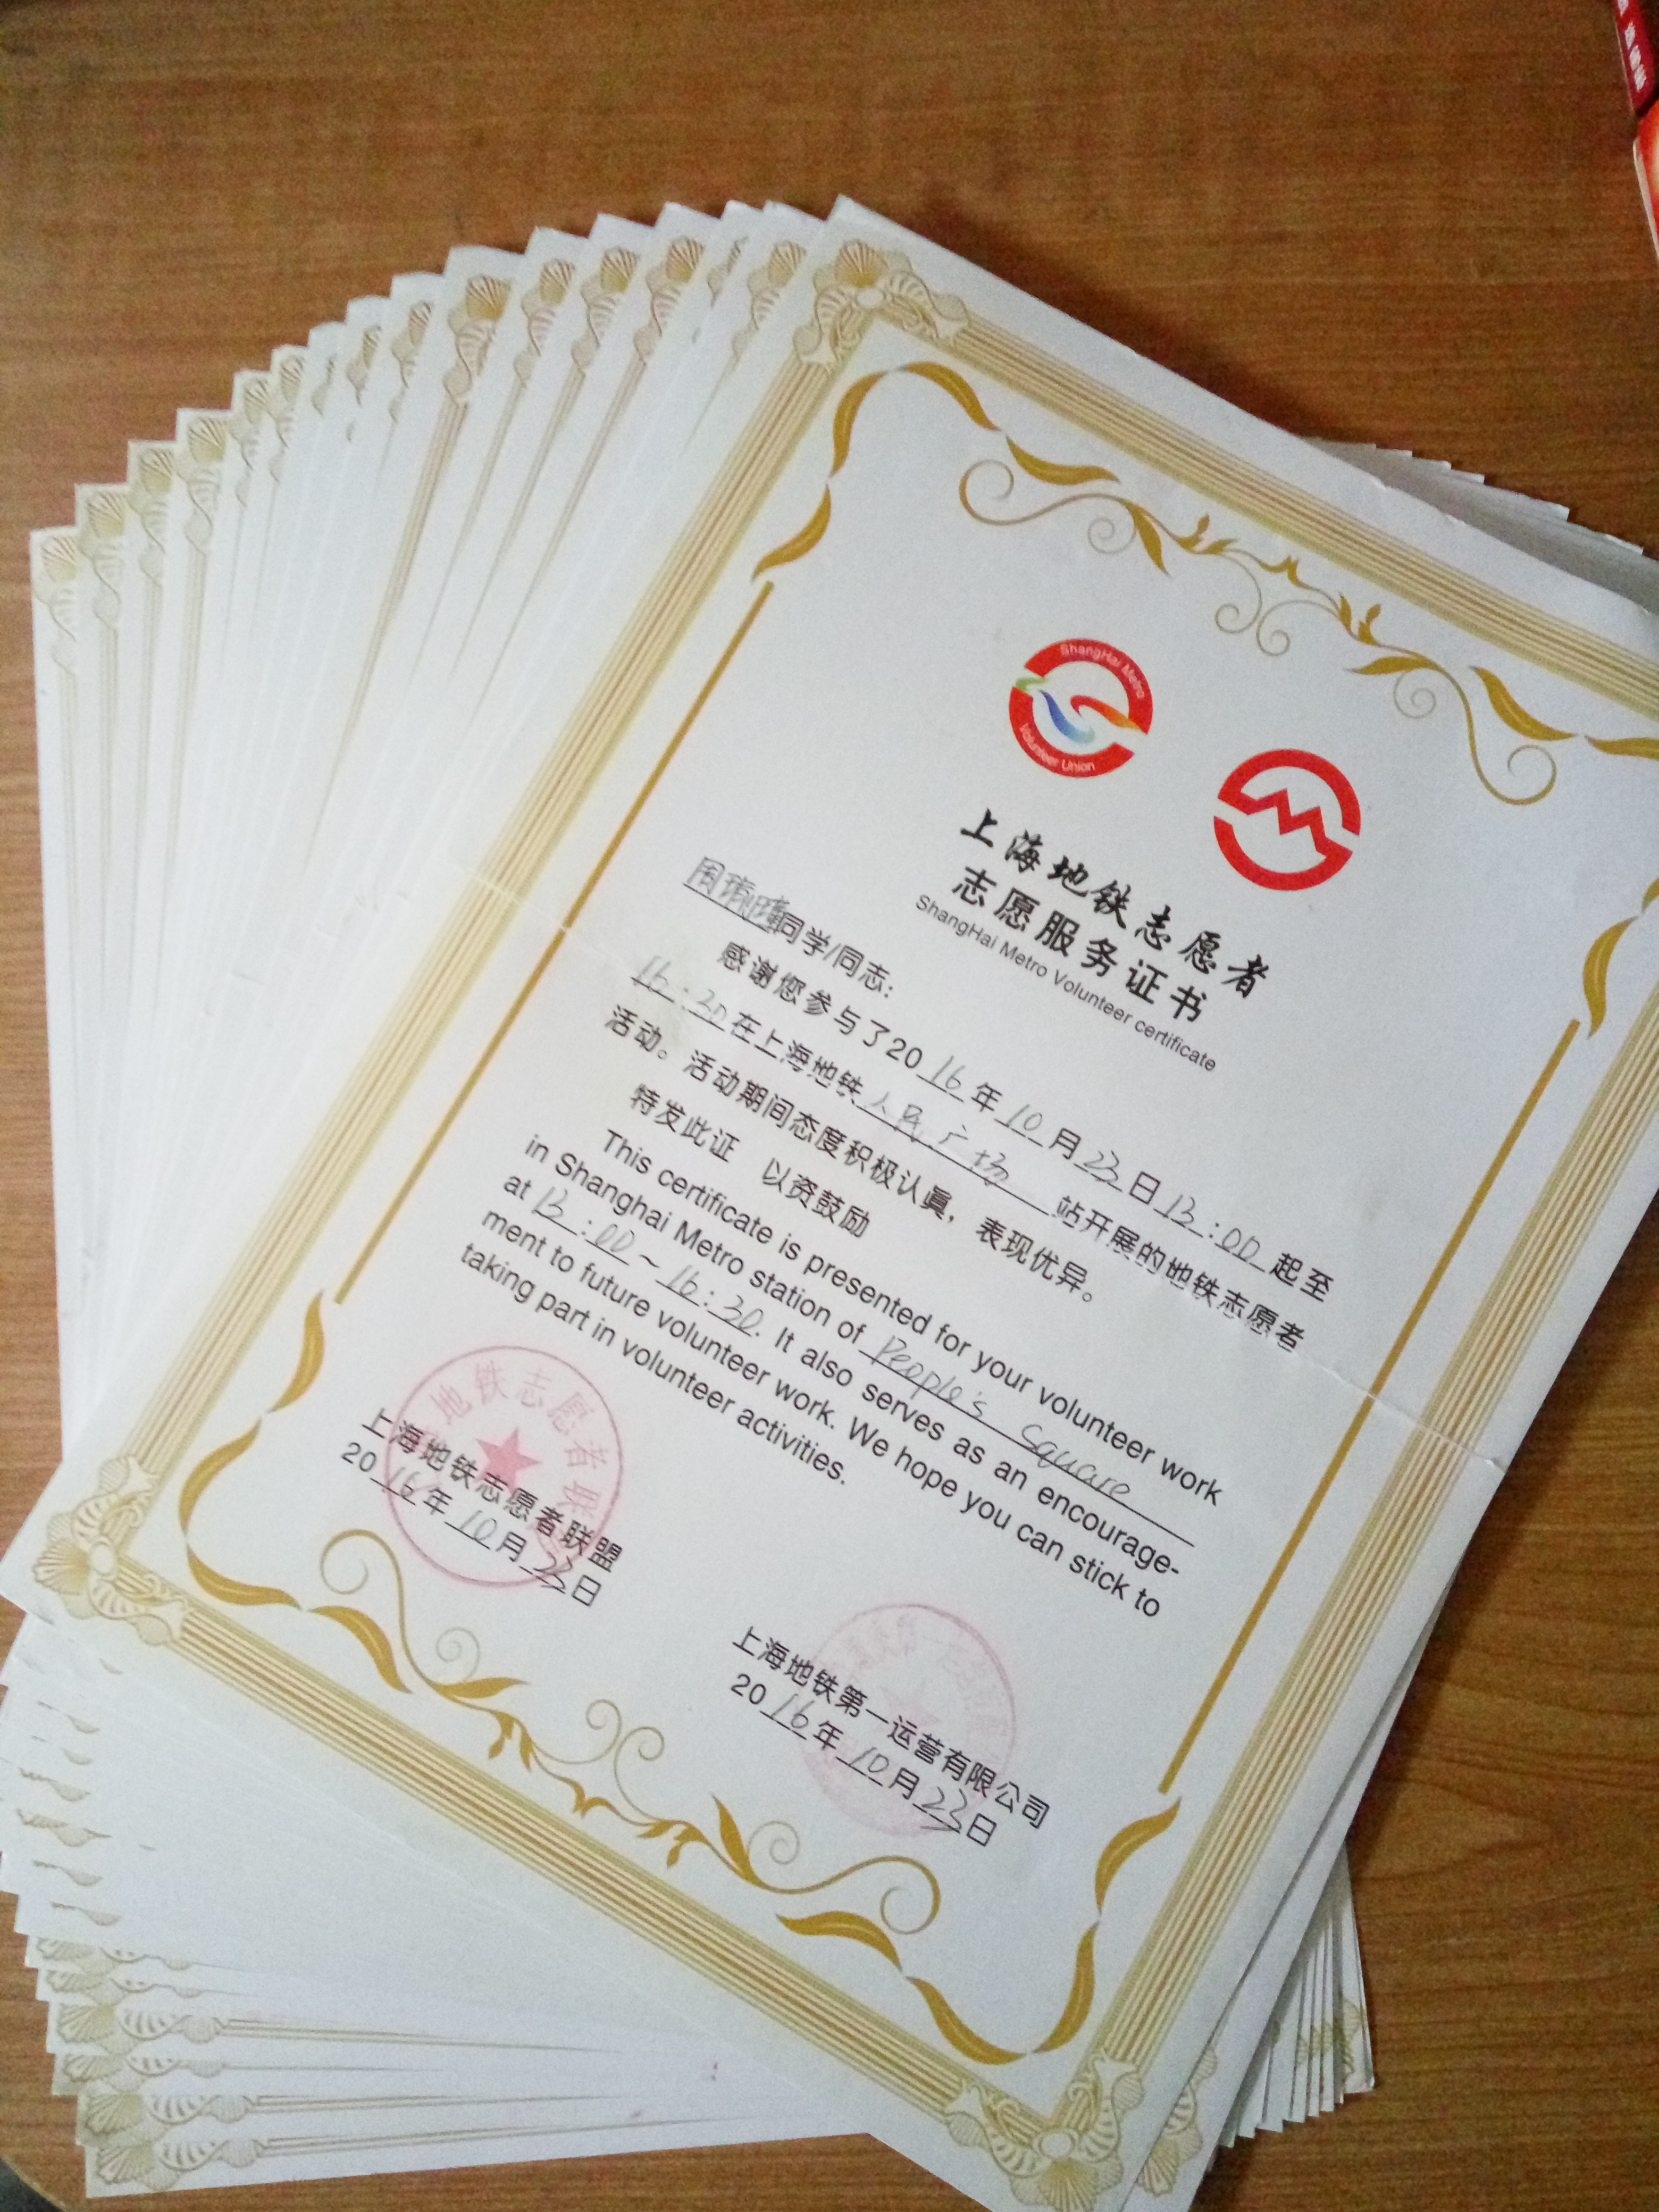 ShangHai Metro
Volunteer Union
上海地铁志愿者
志愿服务证书
ShangHai Metro Volunteer certificate
周 同学/同志:
感谢您参与了2016年10月23日13:00起至
16:30在上海地铁人民广场站开展的地铁志愿者
活动。活动期间态度积极认真,表现优异。
特发此证 以资鼓励
This certificate is presented for your volunteer work
in Shanghai Metro station of People's Square
at 13:00~16:30. It also serves as an encourage-
ment to future volunteer work. We hope you can stick to
taking part in volunteer activities.
地铁志愿者联
上海地铁志愿者联盟
2016年10月23日
上海地铁第一运营有限公司
2016年10月23日